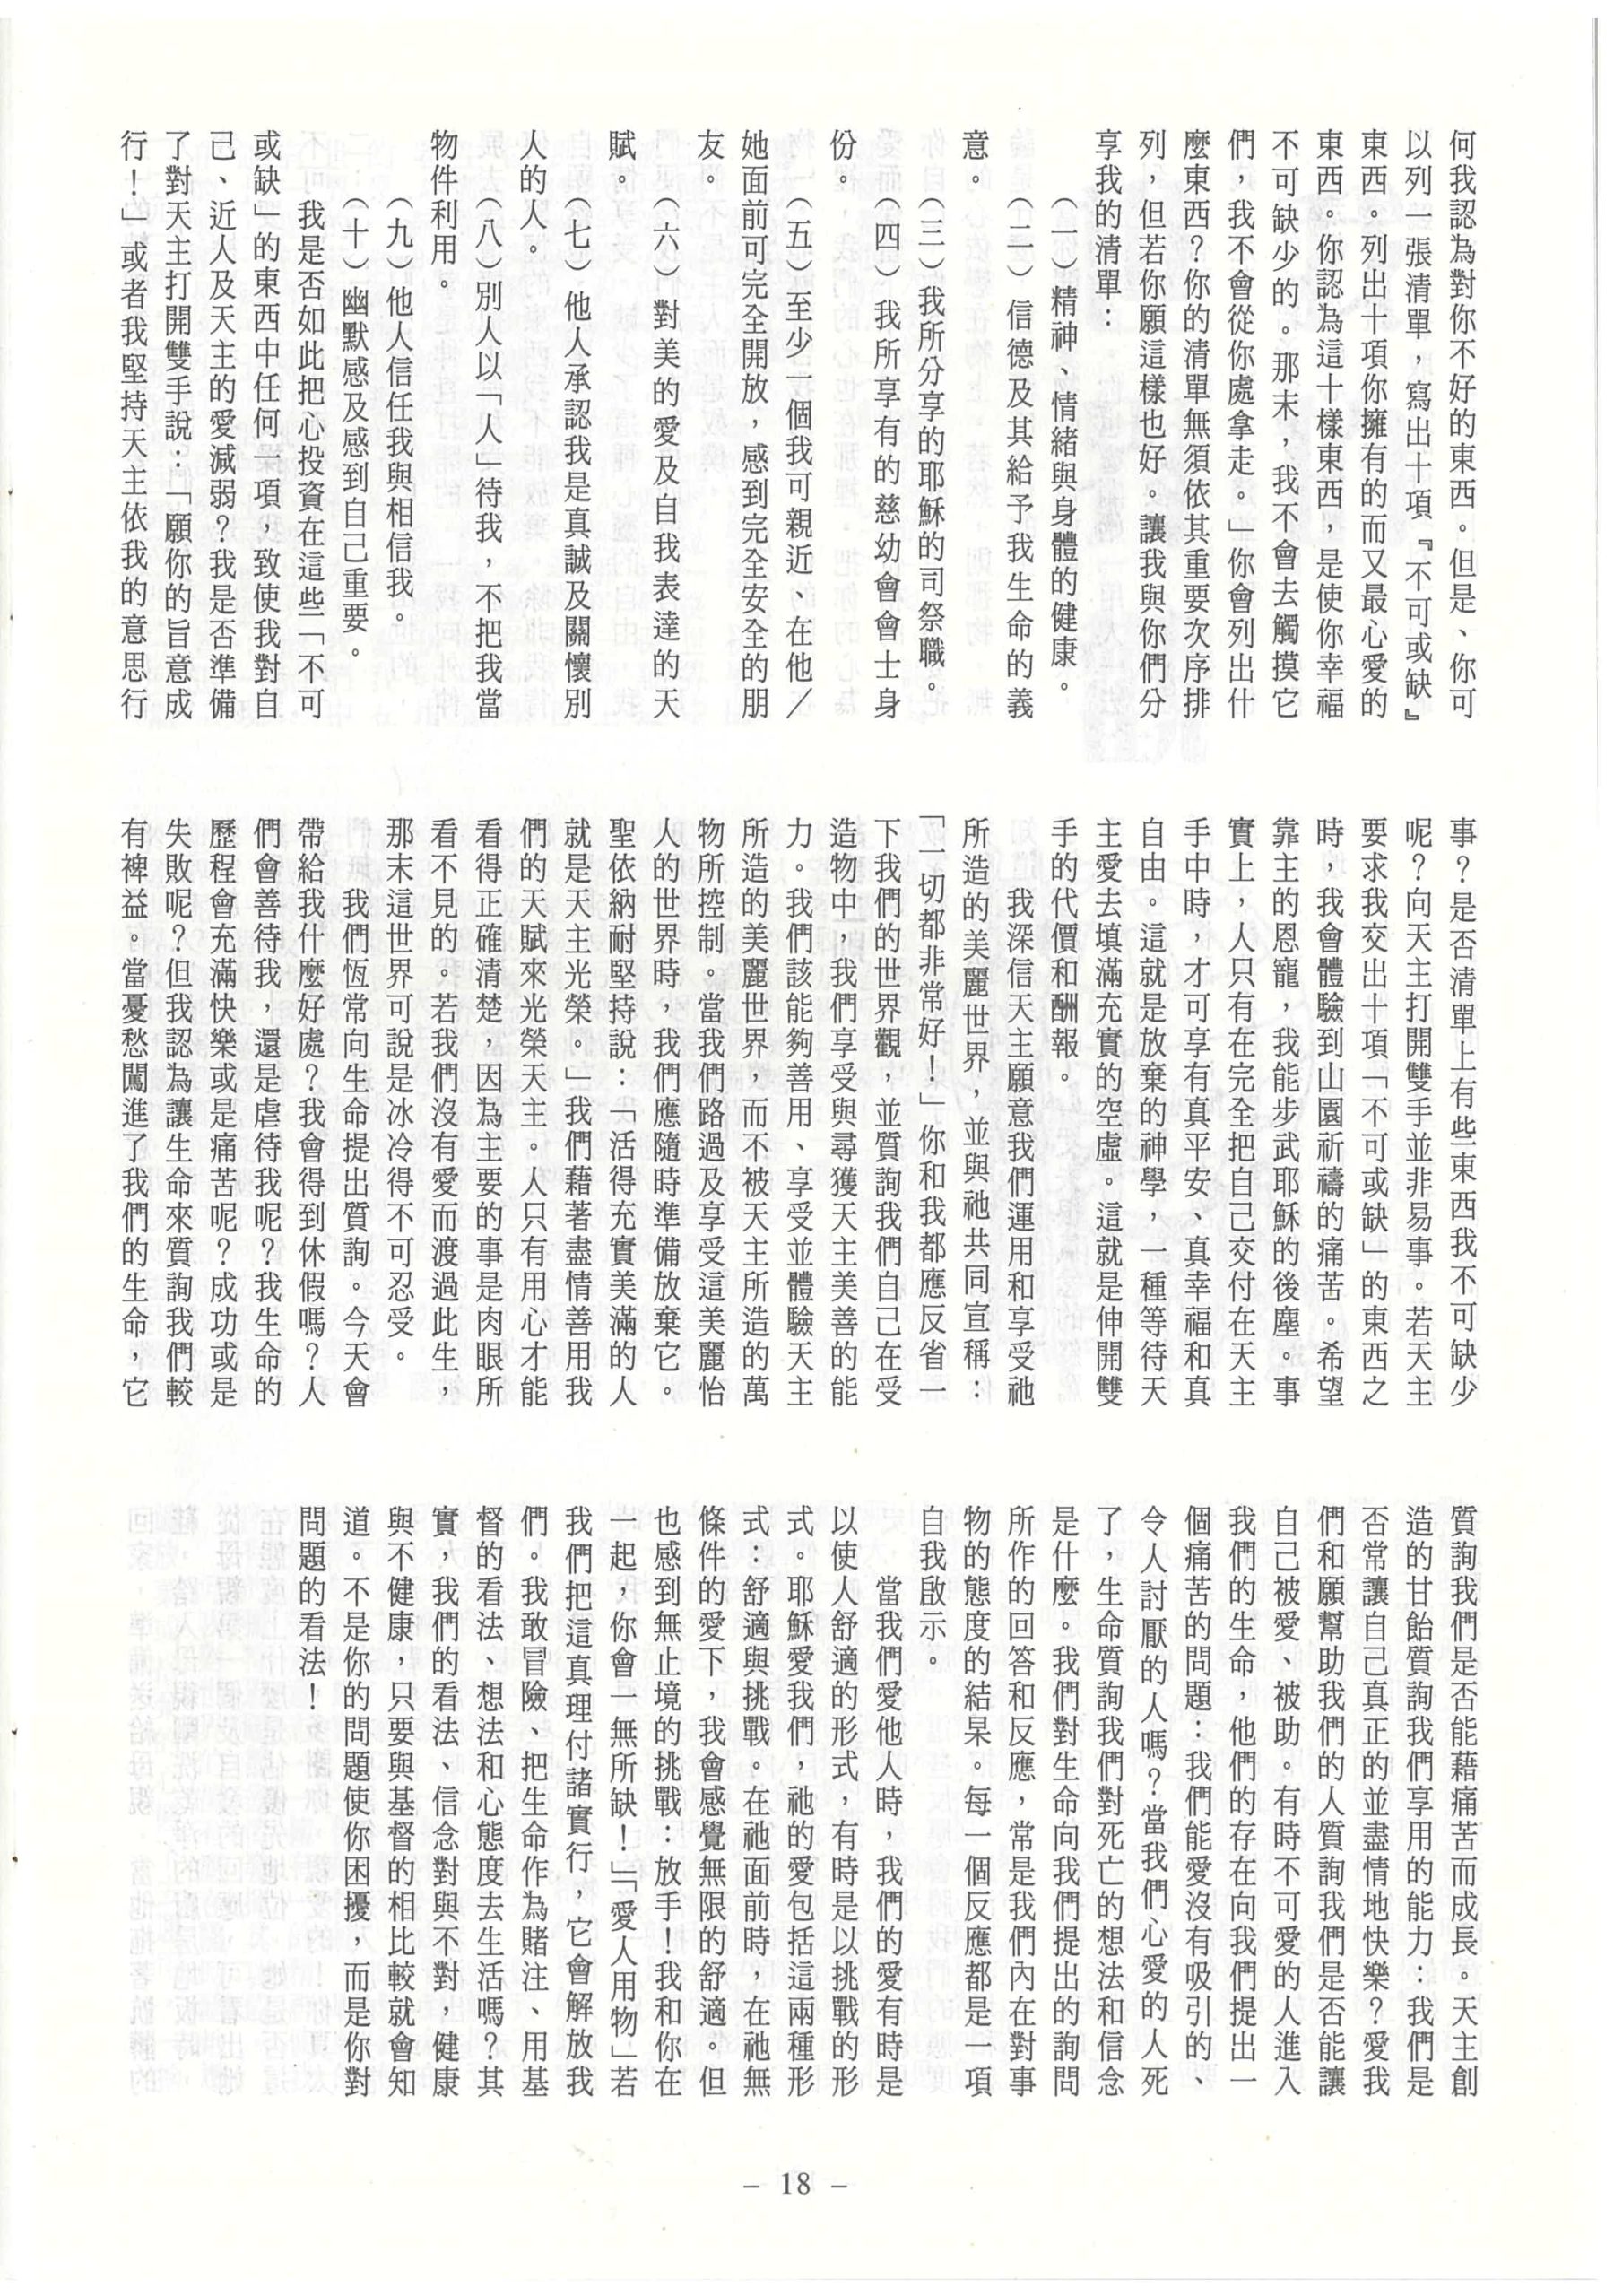 何我認為對你不好的東西。但是、你可
以列一張清單，寫出十項『不可或缺』
東西。列出十項你擁有的而又最心愛的
東西。你認為這十樣東西，是使你幸福
不可缺少的。那末，我不會去觸摸它
們，我不會從你處拿走。」你會列出什
麼東西？你的清單無須依其重要次序排
列，但若你願這樣也好。讓我與你們分
享我的清單：
（一）精神、情緒與身體的健康。
（二）信德及其給予我生命的義
意。
（三）我所分享的耶穌的司祭職。
（四）我所享有的慈幼會會士身
份。
（五）至少一個我可親近、在他／
她面前可完全開放，感到完全安全的朋
友。
（六）對美的愛及自我表達的天
賦。
（七）他人承認我是真誠及關懷別
人的人。
（八）別人以「人」待我，不把我當
物件利用。
（九）他人信任我與相信我。
（十）幽默感及感到自己重要。
我是否如此把心投資在這些「不可
或缺」的東西中任何一項，致使我對自
己、近人及天主的愛減弱？我是否準備
了對天主打開雙手說：「願你的旨意成
行！」或者我堅持天主依我的意思行
事？是否清單上有些東西我不可缺少
呢？向天主打開雙手並非易事。若天主
要求我交出十項「不可或缺」的東西之
時，我會體驗到山園祈禱的痛苦。希望
靠主的恩寵，我能步武耶穌的後塵。事
實上，人只有在完全把自己交付在天主
手中時，才可享有真平安、真幸福和真
自由。這就是放棄的神學，一種等待天
主愛去填滿充實的空虛。這就是伸開雙
手的代價和酬報。
我深信天主願意我們運用和享受祂
所造的美麗世界，並與祂共同宣稱：
「一切都非常好！」你和我都應反省一
下我們的世界觀，並質詢我們自己在受
造物中，我們享受與尋獲天主美善的能
力。我們該能夠善用、享受並體驗天主
所造的美麗世界，而不被天主所造的萬
物所控制。當我們路過及享受這美麗怡
人的世界時，我們應隨時準備放棄它。
聖依納耐堅持說：「活得充實美滿的人
就是天主光榮。」我們藉著盡情善用我
們的天賦來光榮天主。人只有用心才能
看得正確清楚，因為主要的事是肉眼所
看不見的。若我們沒有愛而渡過此生，
那末這世界可說是冰冷得不可忍受。
我們恆常向生命提出質詢。今天會
帶給我什麼好處？我會得到休假嗎？人
們會善待我，還是虐待我呢？我生命的
歷程會充滿快樂或是痛苦呢？成功或是
失敗呢？但我認為讓生命來質詢我們較
有裨益。當憂愁闖進了我們的生命，它
質詢我們是否能藉痛苦而成長。天主創
造的甘飴質詢我們享用的能力：我們是
否常讓自己真正的並盡情地快樂？愛我
們和願幫助我們的人質詢我們是否能讓
自己被愛、被助。有時不可愛的人進入
我們的生命，他們的存在向我們提出一
個痛苦的問題：我們能愛沒有吸引的、
令人討厭的人嗎？當我們心愛的人死
了，生命質詢我們對死亡的想法和信念
是什麼。我們對生命向我們提出的詢問
所作的回答和反應，常是我們內在對事
物的態度的結呆。每一個反應都是一項
自我啟示。
當我們愛他人時，我們的愛有時是
以使人舒適的形式，有時是以挑戰的形
式。耶穌愛我們，祂的愛包括這兩種形
式：舒適與挑戰。在祂面前時，在祂無
條件的愛下，我會感覺無限的舒適。但
也感到無止境的挑戰：放手！我和你在
一起，你會一無所缺！」「愛人用物」若
我們把這真理付諸實行，它會解放我
們。我敢冒險、把生命作為賭注、用基
督的看法、想法和心態度去生活嗎？其
實，我們的看法、信念對與不對，健康
與不健康，只要與基督的相比較就會知
道。不是你的問題使你困擾，而是你對
問題的看法！
– 18 –